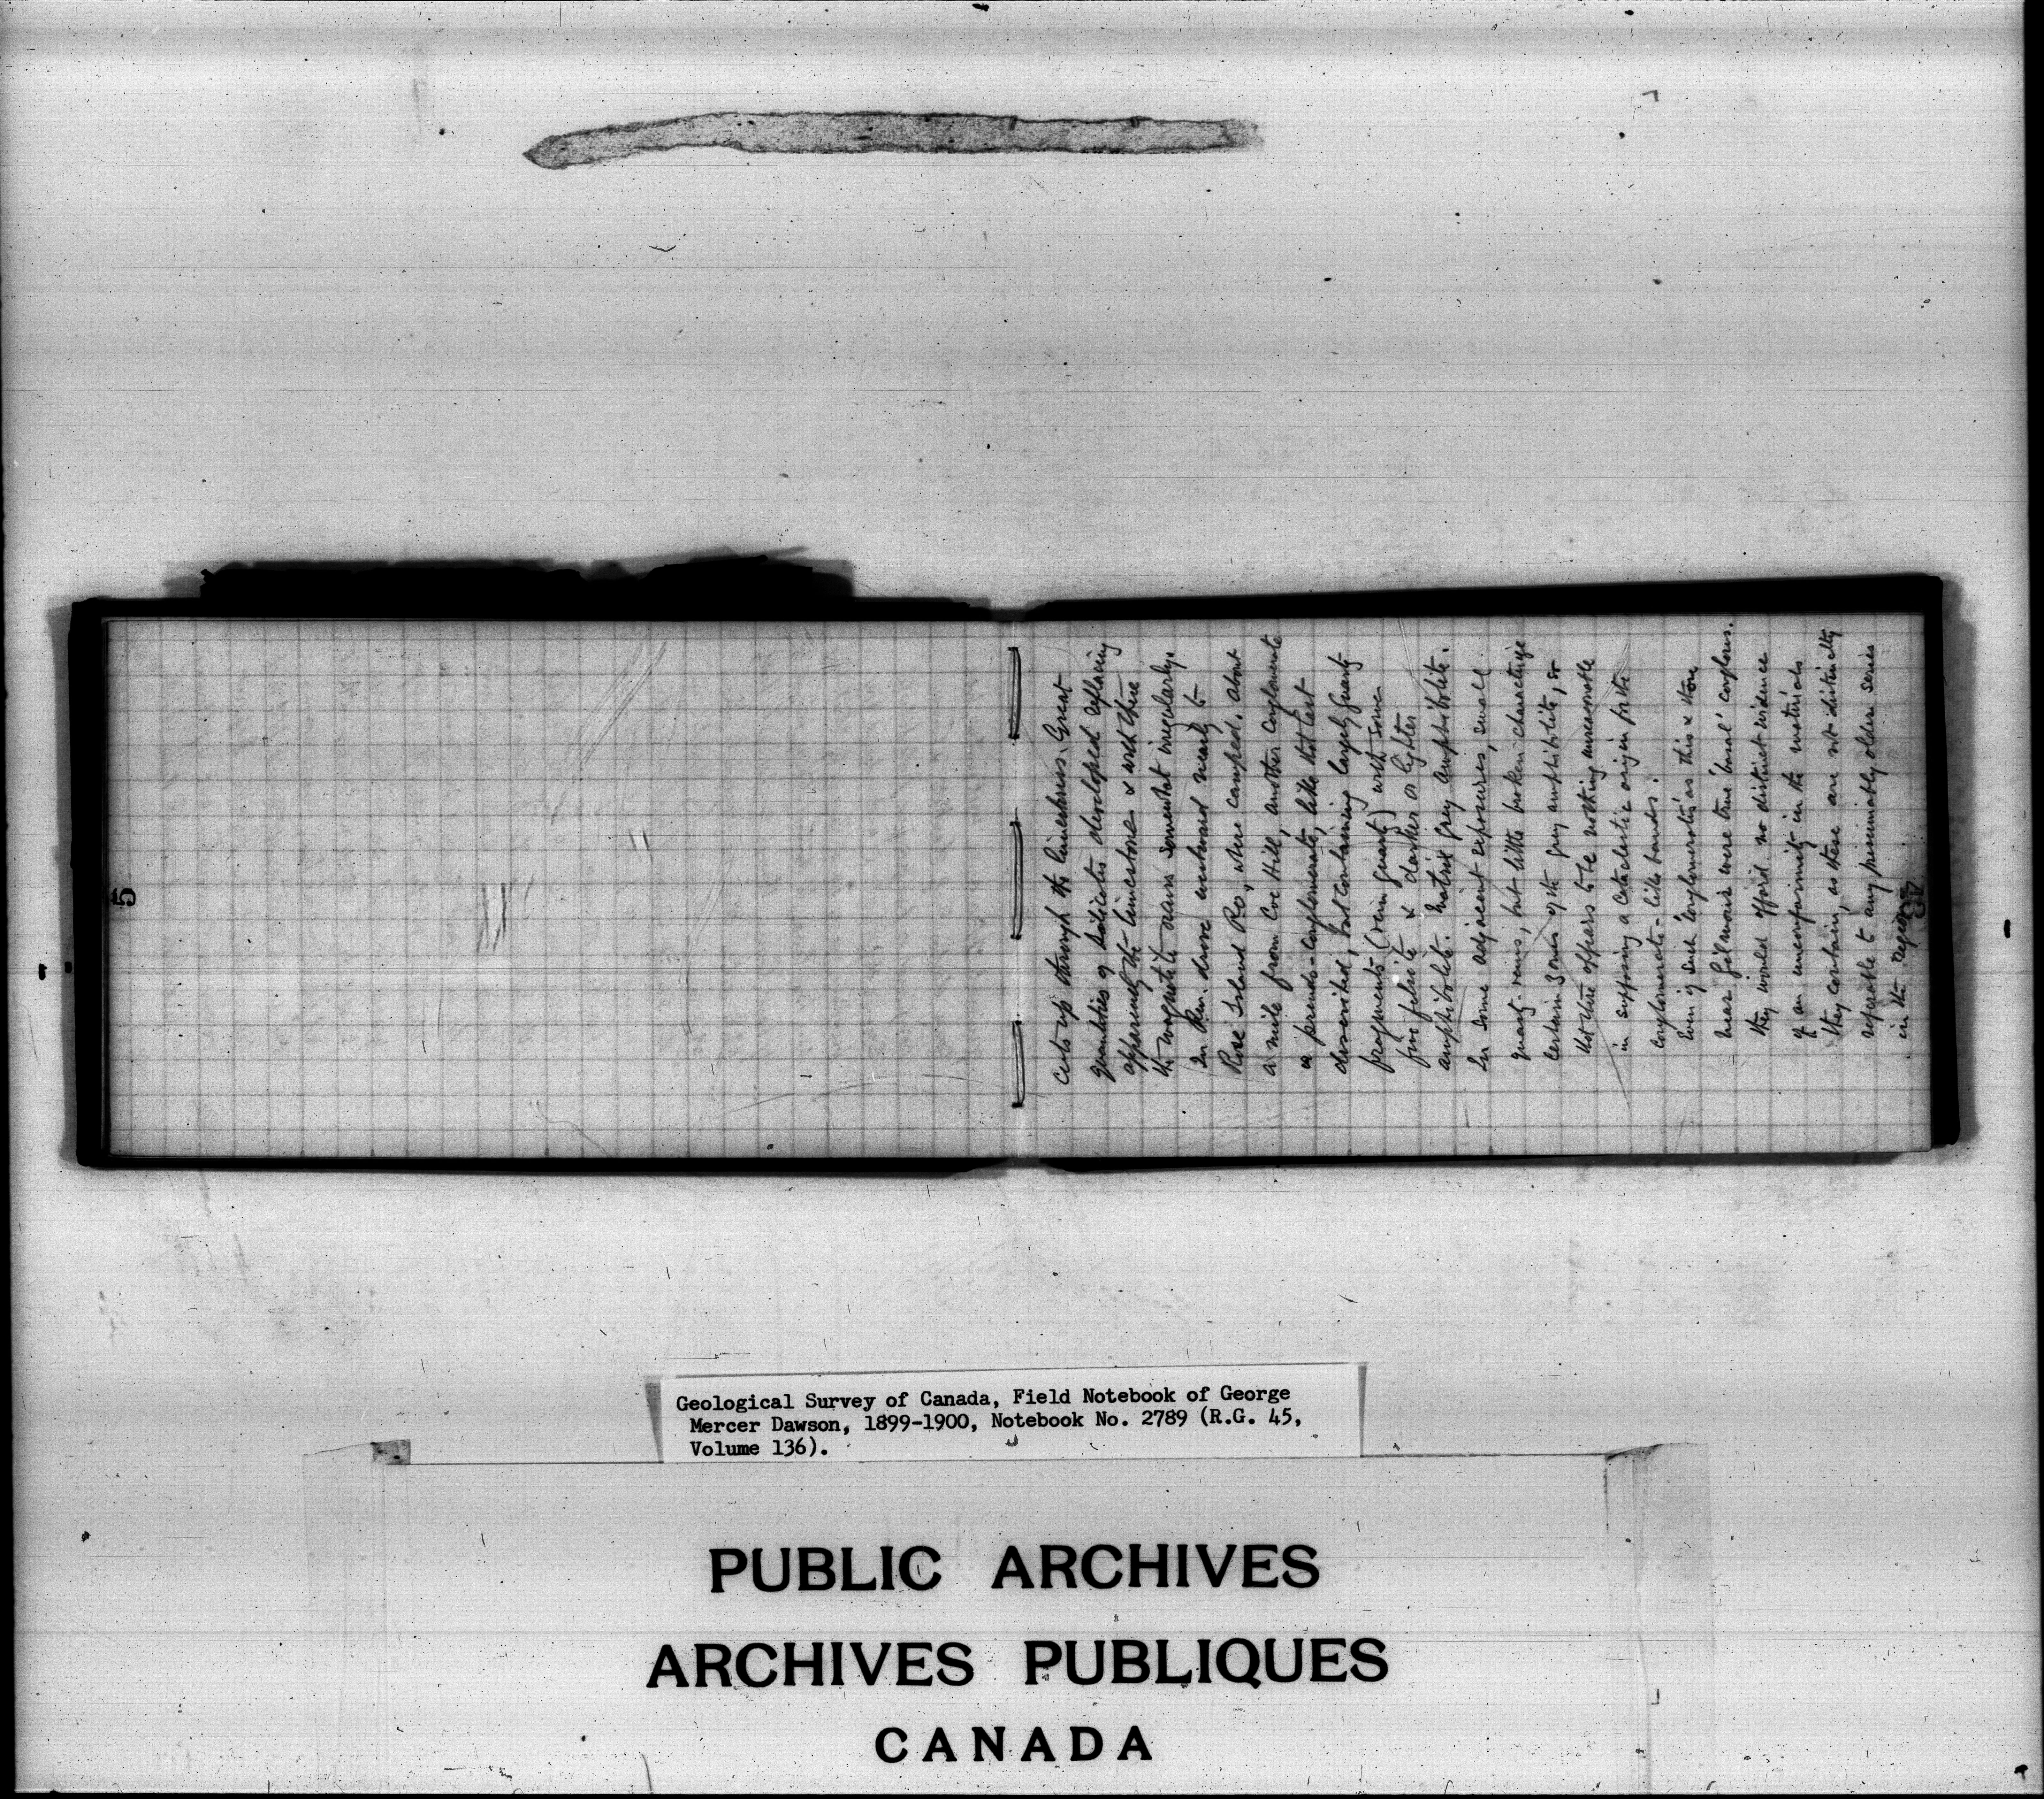 5
cuts up through the limestones. Great
quantities of silicates developed replacing
apparently the limestone & with these
the magnetite occurs somewhat irregularly.
In p.m. drove eastward nearly to
Rose Island Ro, where camped. About
a mile from Coe Hill, another conglomerate
a pseudo-conglomerate, like that last
described, but containing largely quartz
fragments (vein quartz) with some
fine felsite & darker or lighter
amphibolite. Matrix grey amphibolite.
In some adjacent exposures, small
quartz veins, but little broken characterize
certain zones of the grey amphibolite, so
that there appears to be nothing unreasonable
in supposing a cataclastic origin for the
conglomerate-like bands.
Even if such 'conglomerates' as this & those
near Gilmour were true 'basal' congloms.
they would afford no distinct evidence
of an unconformity in the materials
they contain, as these are not distinctly
referable to any presumably older series
in the region.
Geological Survey of Canada, Field Notebook of George
Mercer Dawson, 1899-1900, Notebook No. 2789 (R.G. 45,
Volume 136).
PUBLIC ARCHIVES
ARCHIVES PUBLIQUES
CANADA